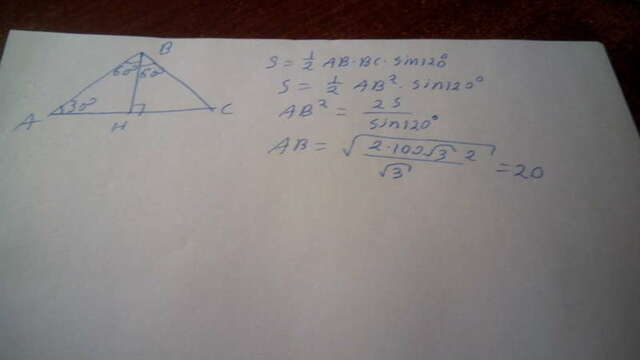 B
60° 60°
30°
A
H
C
S = 1/2 AB · BC · sin120°
S = 1/2 AB² · sin120°
AB² = 2S / sin120°
AB = √(2·100√3 2 / √3) = 20